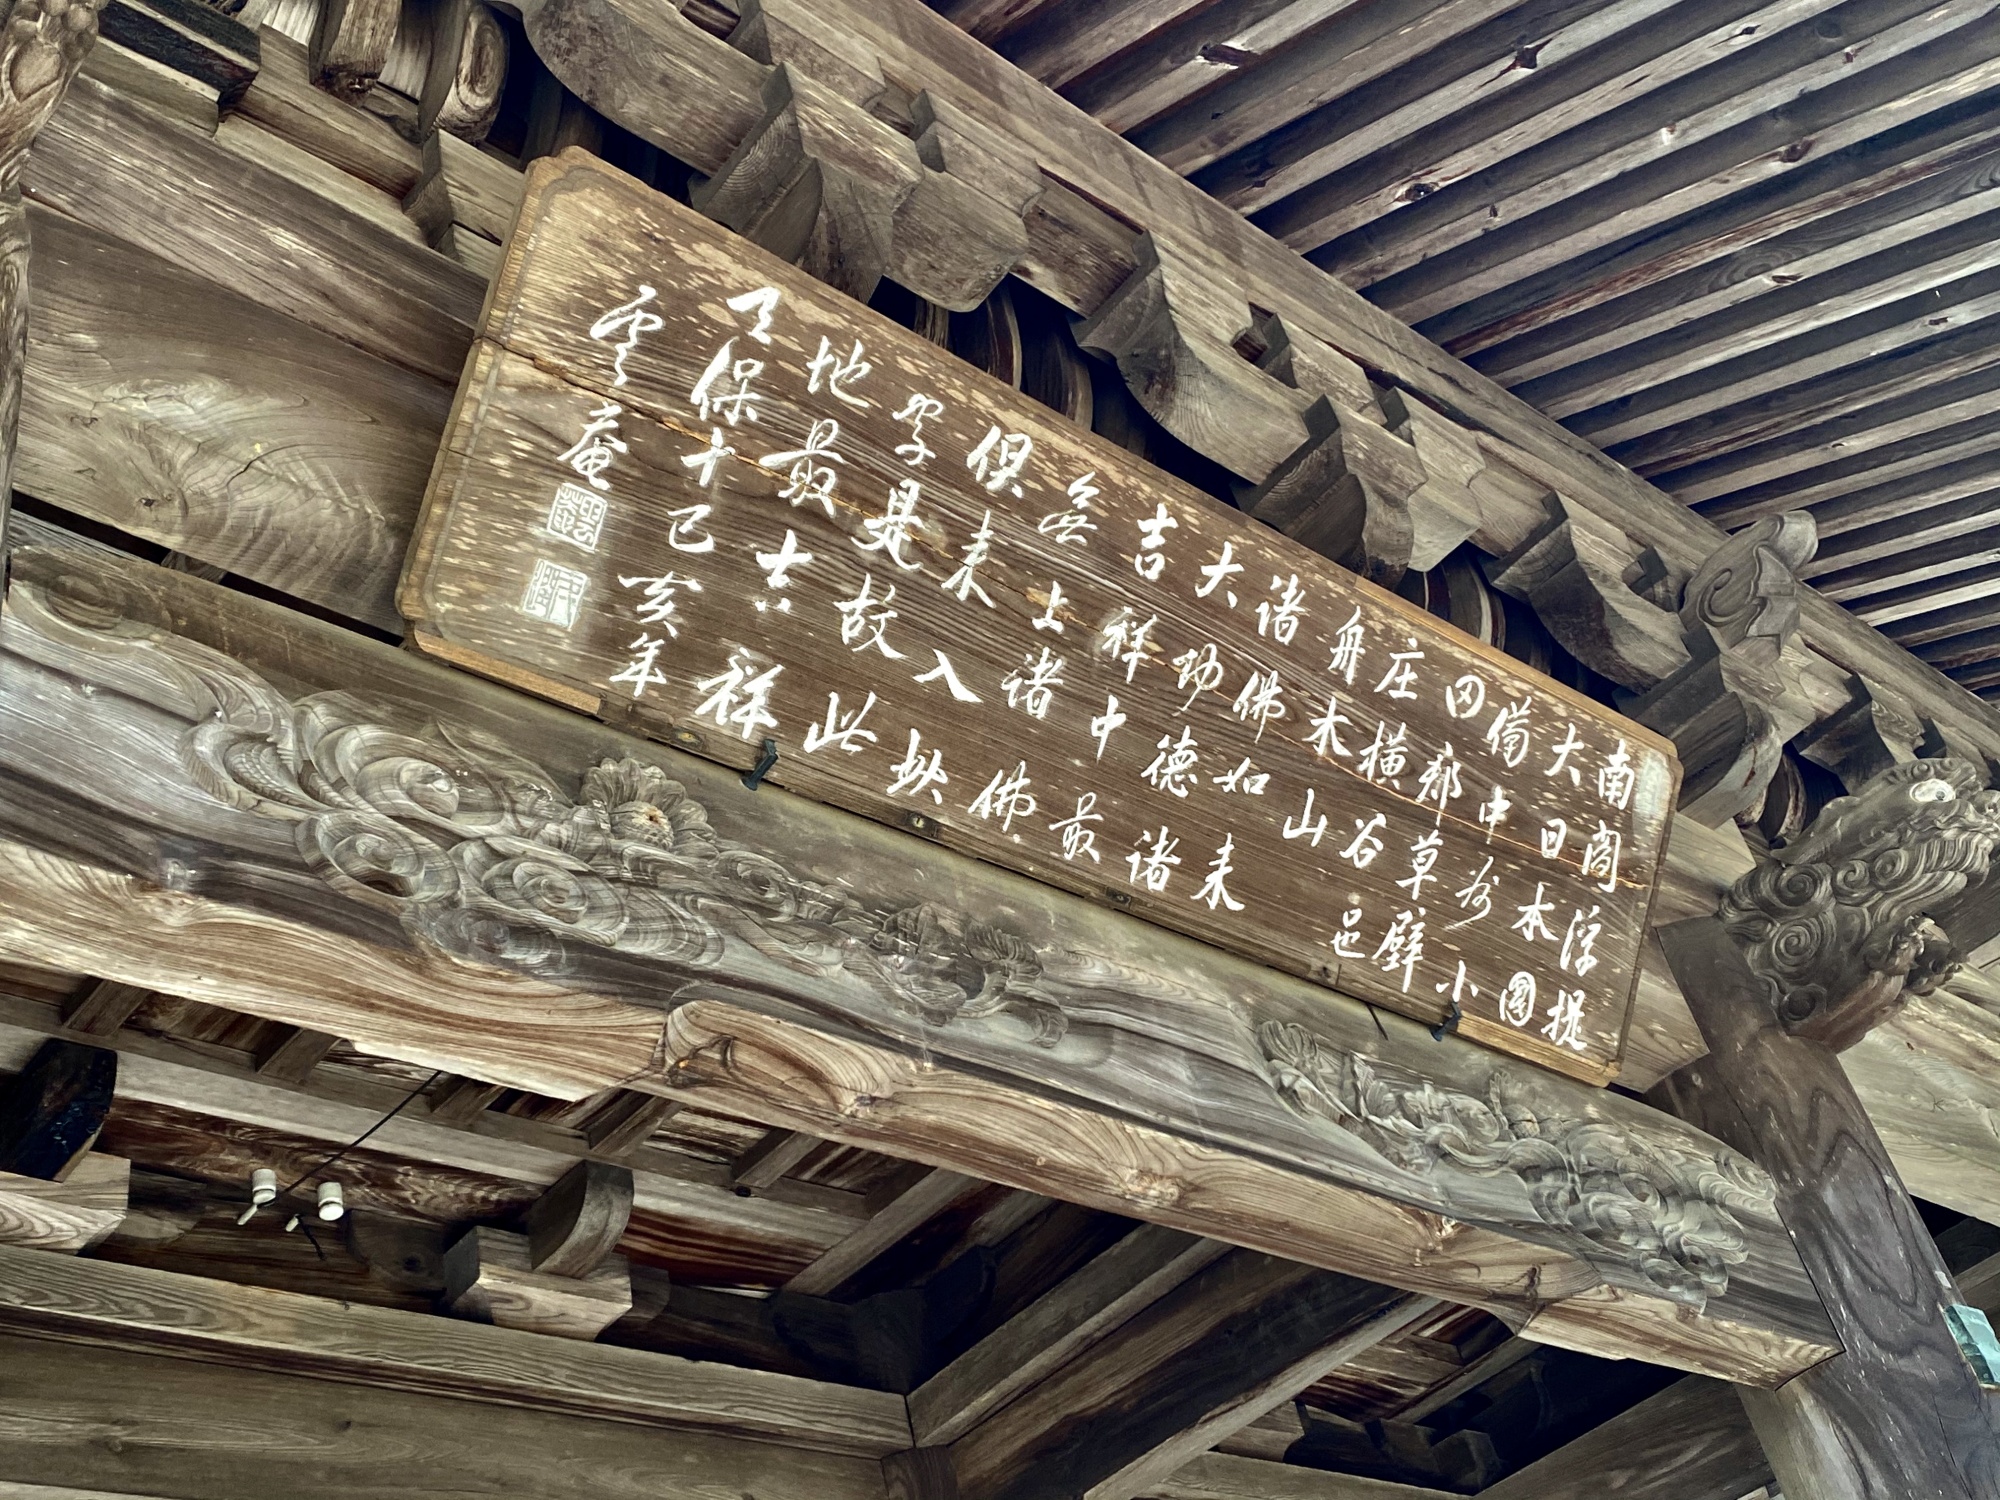 南閻浮提
大日本國
備中州小
田郡草壁
庄横谷邑
舟木山
諸佛如来
大功德諸
吉祥中最
無上諸佛
倶来入此
處是故此
地最吉祥
天保十己亥年
雲庵